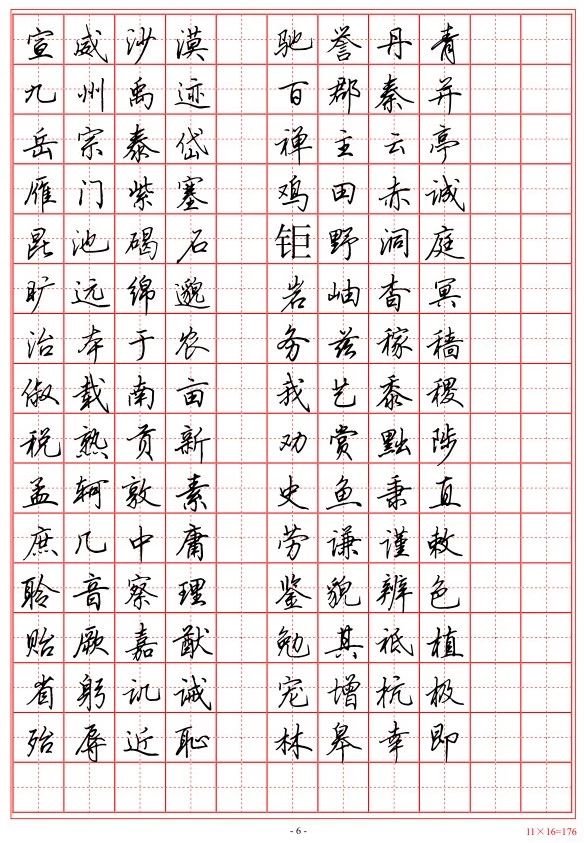 宣威沙漠 驰誉丹青
九州禹迹 百郡秦并
岳宗泰岱 禅主云亭
雁门紫塞 鸡田赤诚
昆池碣石 钜野洞庭
旷远绵邈 岩岫杳冥
治本于农 务兹稼穑
俶载南亩 我艺黍稷
税熟贡新 劝赏黜陟
孟轲敦素 史鱼秉直
庶几中庸 劳谦谨敕
聆音察理 鉴貌辨色
贻厥嘉猷 勉其祗植
省躬讥诫 宠增抗极
殆辱近耻 林皋幸即
- 6 -
11×16=176